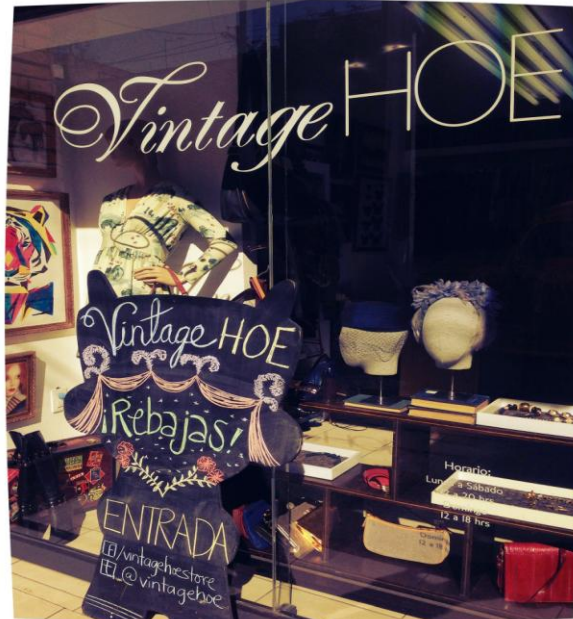 Vintage HOE
Vintage HOE
¡Rebajas!
ENTRADA
/vintagehoestore
@vintagehoe
Horario:
Lunes a Sábado
a 20 hrs
Domingo
12 a 18 hrs